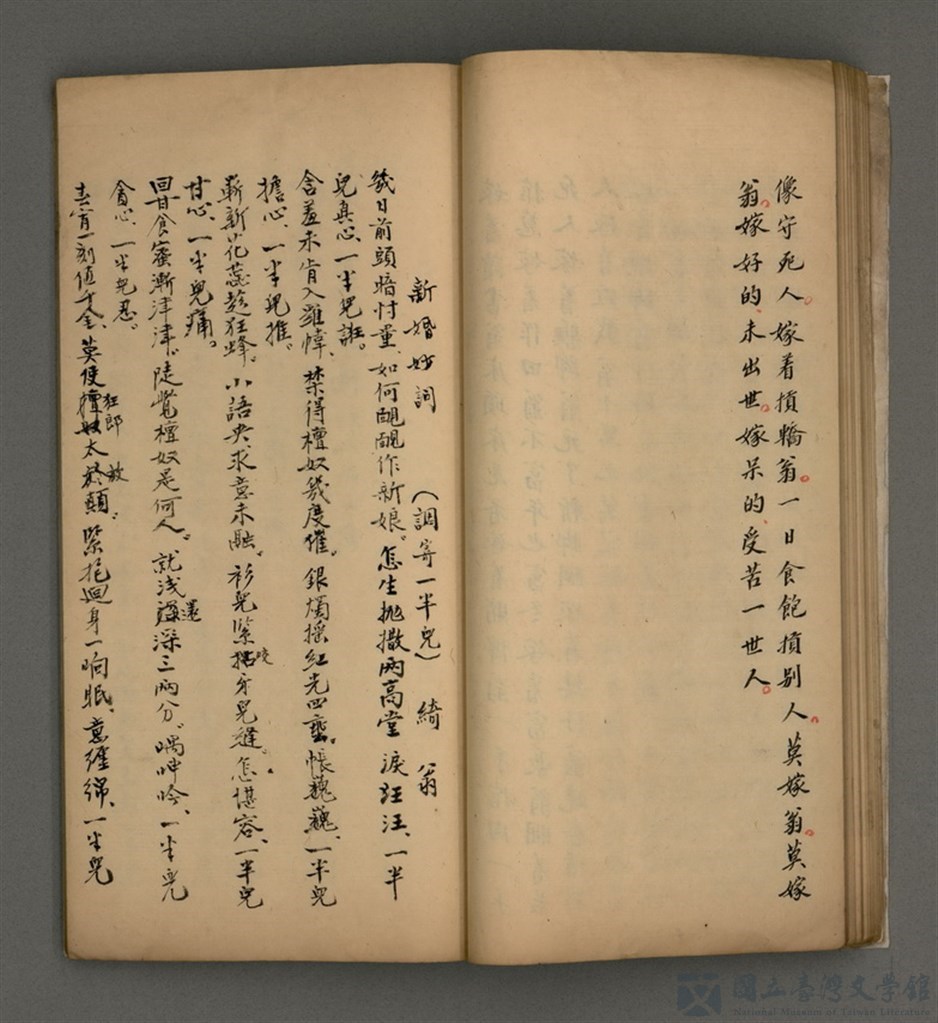 像守死人。嫁着摃轎翁。一日食飽摃別人。莫嫁翁。莫嫁
翁。嫁好的、未出世。嫁呆的、受苦一世人。
新婚妙詞 (調寄一半兒) 綺翁
幾日前頭暗忖量、如何靦覥作新娘。怎生抛撒兩高堂 淚汪汪、一半
兒真心、一半兒誑。
含羞未肯入羅幃、禁得檀奴幾度催。銀燭搖紅光四壁。帳巍巍、一半兒
擔心、一半兒推。
嶄新花蕊趁狂蜂。小語央求意未融。衫兒緊咬牙兒縫。怎堪容、一半兒
甘心、一半兒痛。
回甘食蜜漸津津。陡覺檀奴是何人。就浅還深三兩分。嗚呻吟、一半兒
貪心、一半兒忍。
去宵一刻值千金、莫使檀奴狂郎太放顛。緊抱迴身一晌眠、意纏綿、一半兒
國立臺灣文學館
National Museum of Taiwan Literature